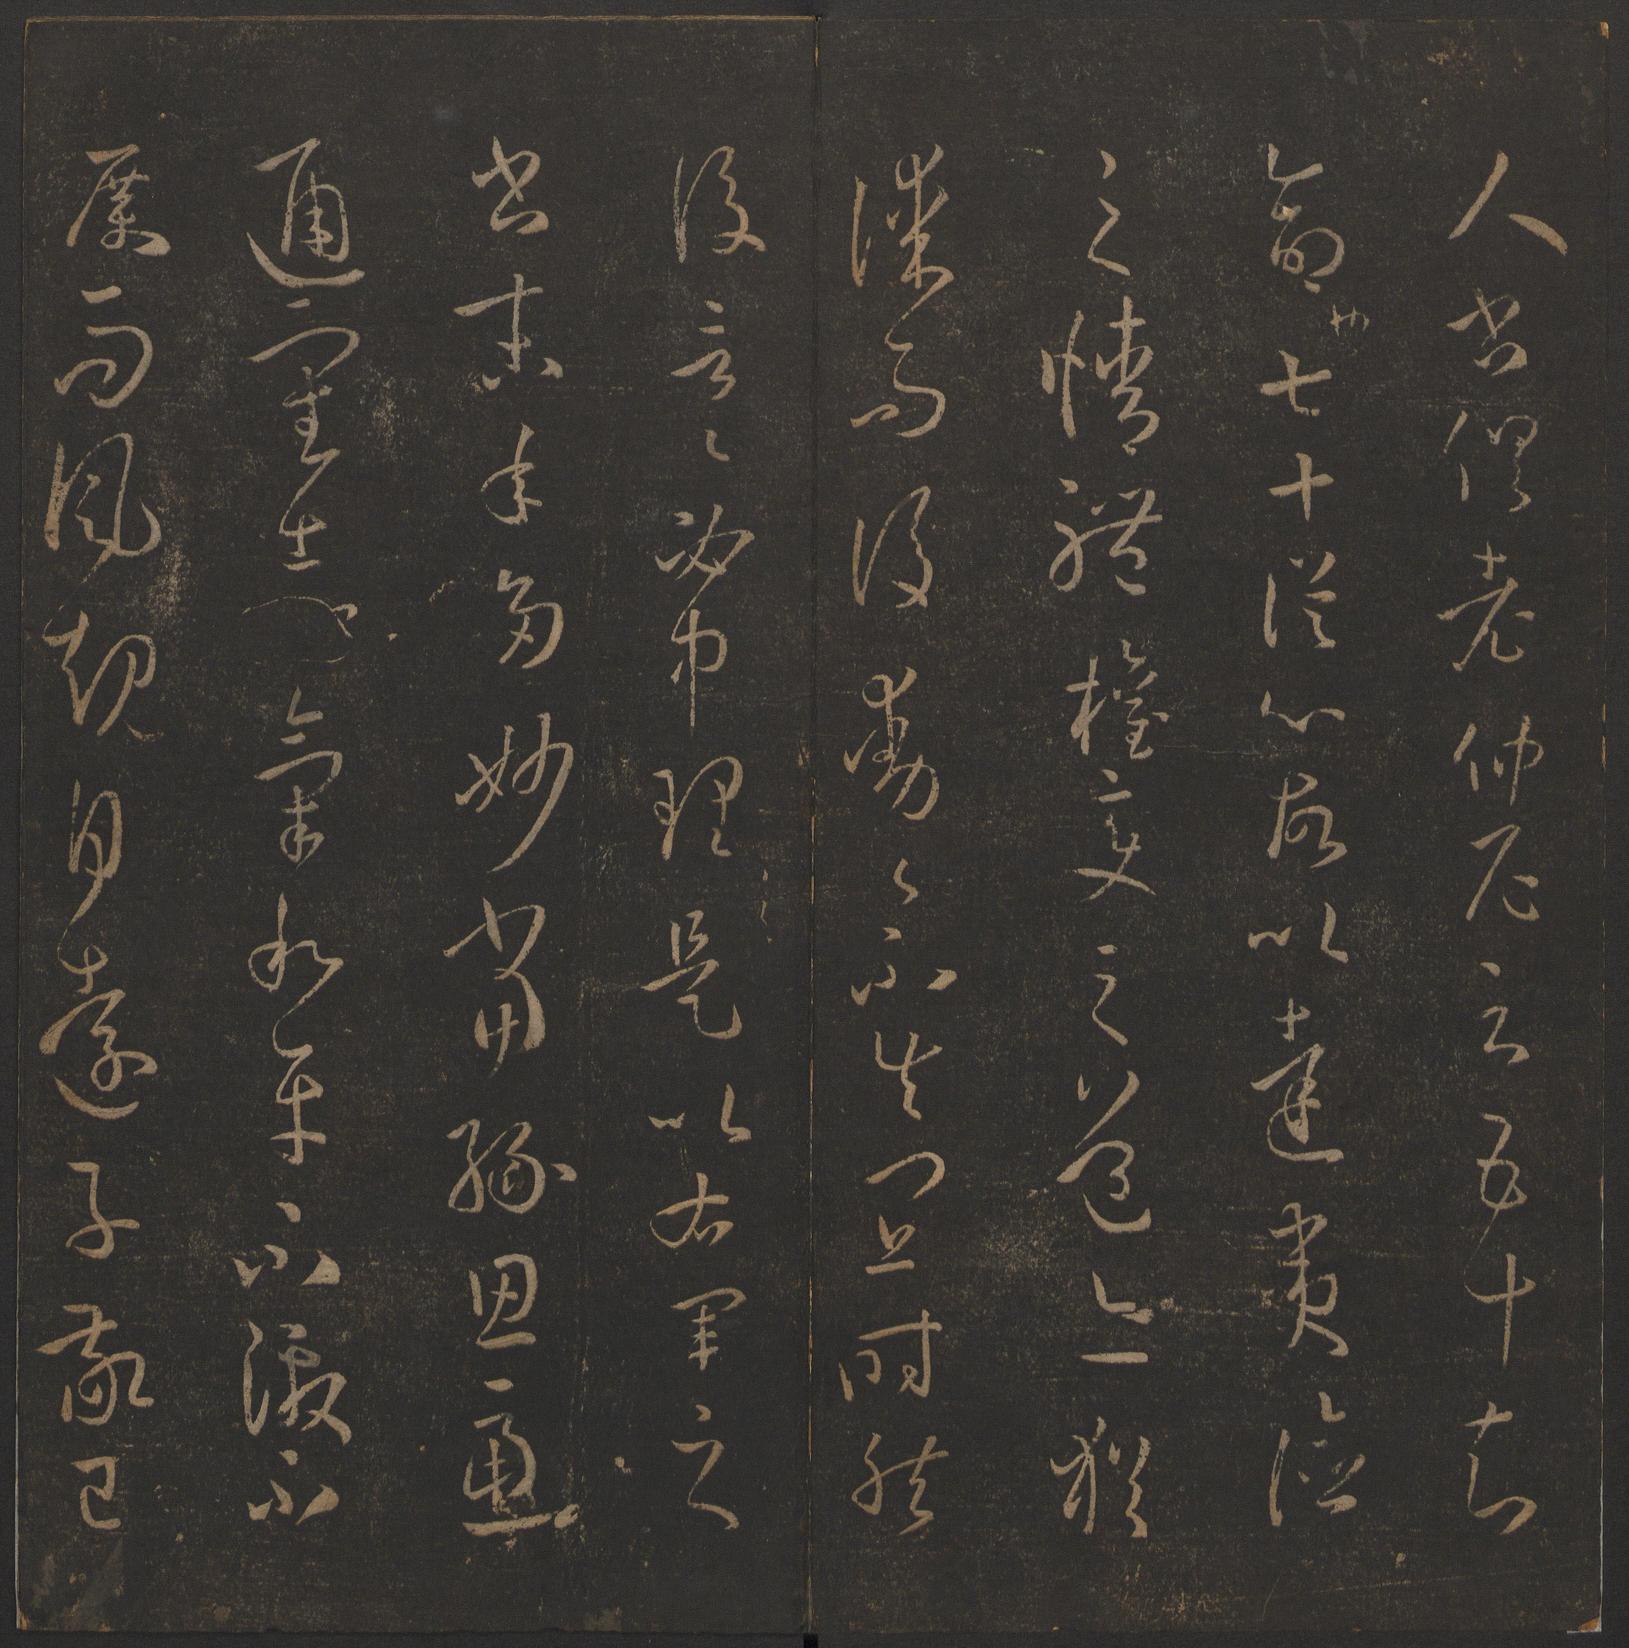 人書俱老仲尼云五十知
命也七十從心故以達夷險
之情體權變之道亦猶
謀而後動〻不失宜時然
後言〻必中理是以右軍之
書末年多妙當緣思慮
通審志氣和平不激不
厲而風規自遠子敬已